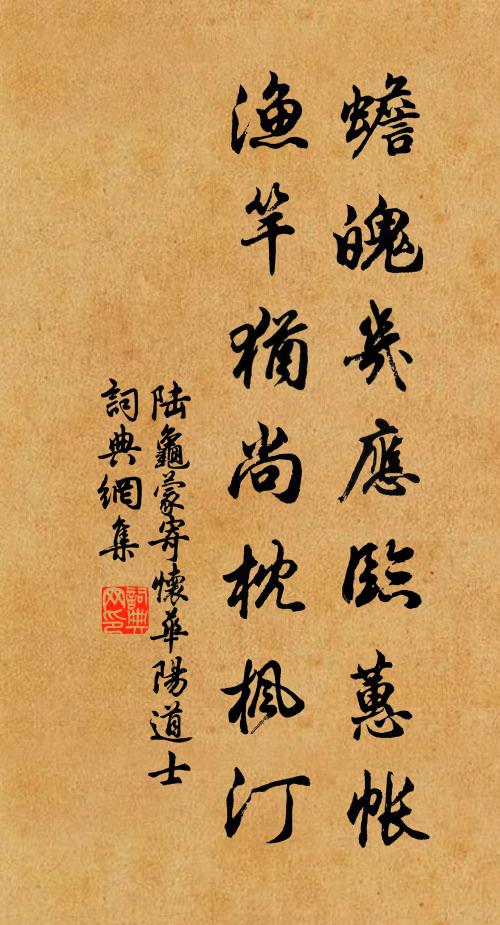 蟾魄幾應臨蕙帳
漁竿猶尚枕楓汀
陸龜蒙寄懷華陽道士
詞典網集
詞典网印